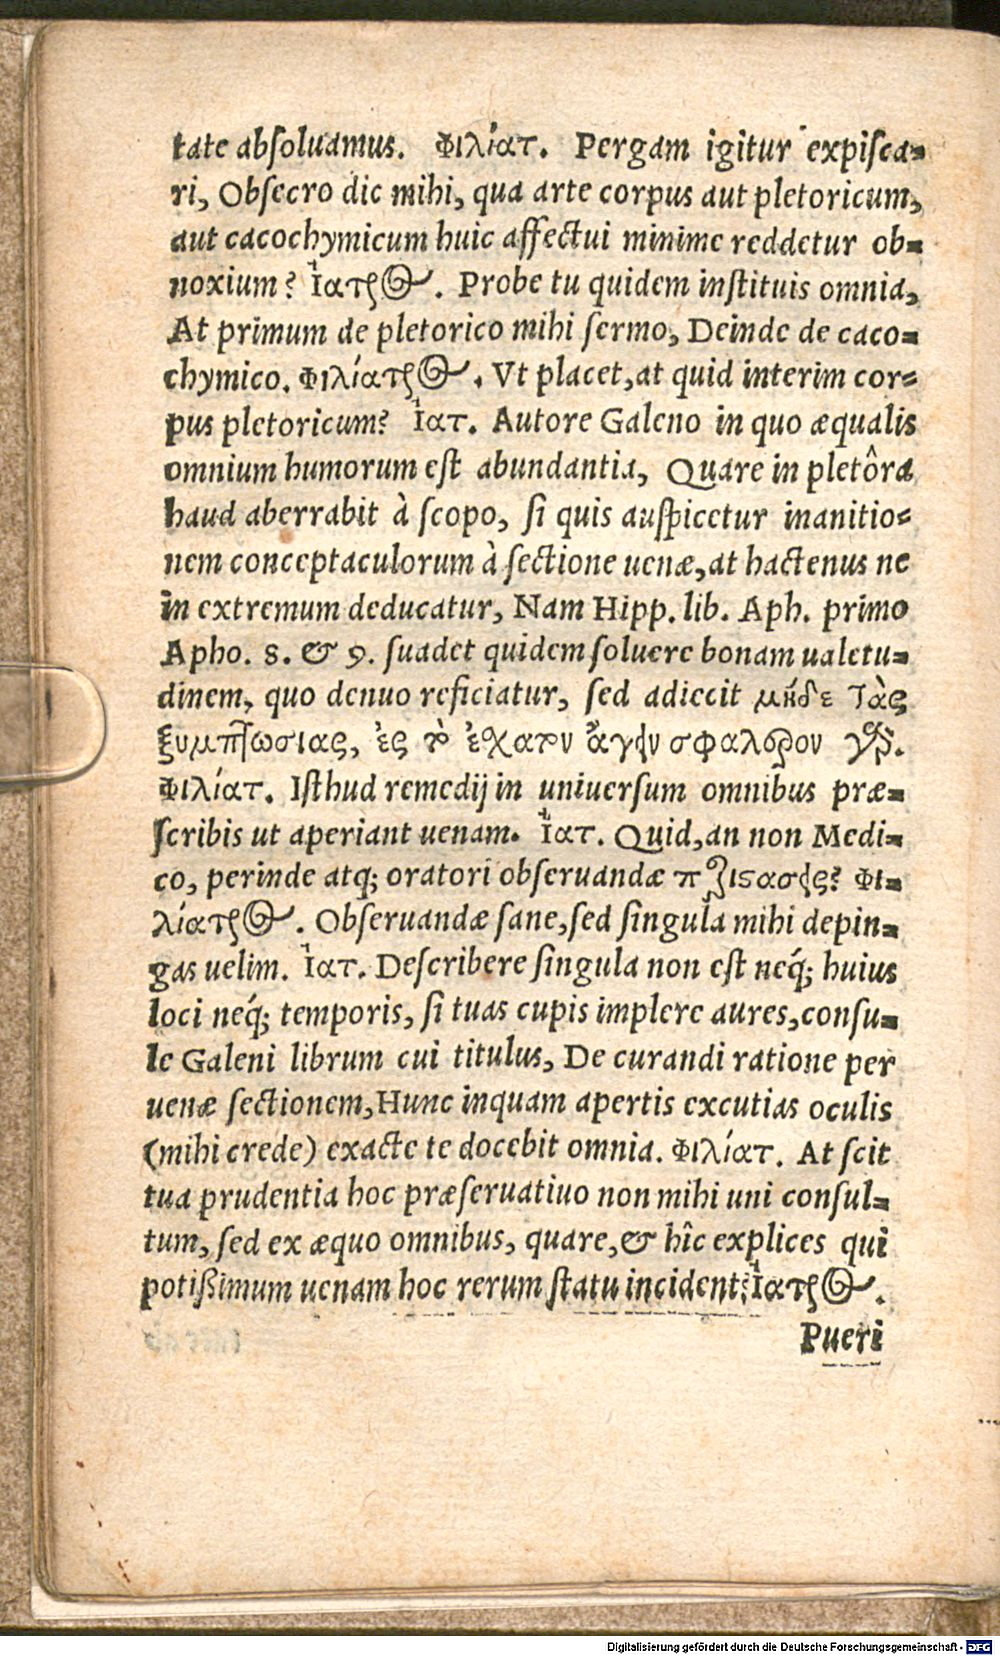 tate absoluamus. Φιλίατ. Pergam igitur expisca-
ri, Obsecro dic mihi, qua arte corpus aut pletoricum,
aut cacochymicum huic affectui minime reddetur ob-
noxium? Ἰατρὸς. Probe tu quidem instituis omnia,
At primum de pletorico mihi sermo, Deinde de caco-
chymico. Φιλίατρος. Vt placet, at quid interim cor-
pus pletoricum? Ἰατ. Autore Galeno in quo æqualis
omnium humorum est abundantia, Quare in pletôra
haud aberrabit à scopo, si quis auspicetur inanitio-
nem conceptaculorum à sectione uenæ, at hactenus ne
in extremum deducatur, Nam Hipp. lib. Aph. primo
Apho. 8. & 9. suadet quidem soluere bonam ualetu-
dinem, quo denuo reficiatur, sed adiecit μηδὲ τὰς
ξυμπτώσιας, ἐς τὸ ἔσχατον ἄγειν σφαλερὸν γὰρ.
Φιλίατ. Isthud remedij in uniuersum omnibus præ-
scribis ut aperiant uenam. Ἰατ. Quid, an non Medi-
co, perinde atq; oratori obseruandæ περιστάσεις? Φι-
λίατρος. Obseruandæ sane, sed singula mihi depin-
gas uelim. Ἰατ. Describere singula non est neq́; huius
loci neq́; temporis, si tuas cupis implere aures, consu-
le Galeni librum cui titulus, De curandi ratione per
uenæ sectionem, Hunc inquam apertis excutias oculis
(mihi crede) exacte te docebit omnia. Φιλίατ. At scit
tua prudentia hoc præseruatiuo non mihi uni consul-
tum, sed ex æquo omnibus, quare, & hîc explices qui
potißimum uenam hoc rerum statu incident? Ἰατρὸς.
Pueri
Digitalisierung gefördert durch die Deutsche Forschungsgemeinschaft - DFG